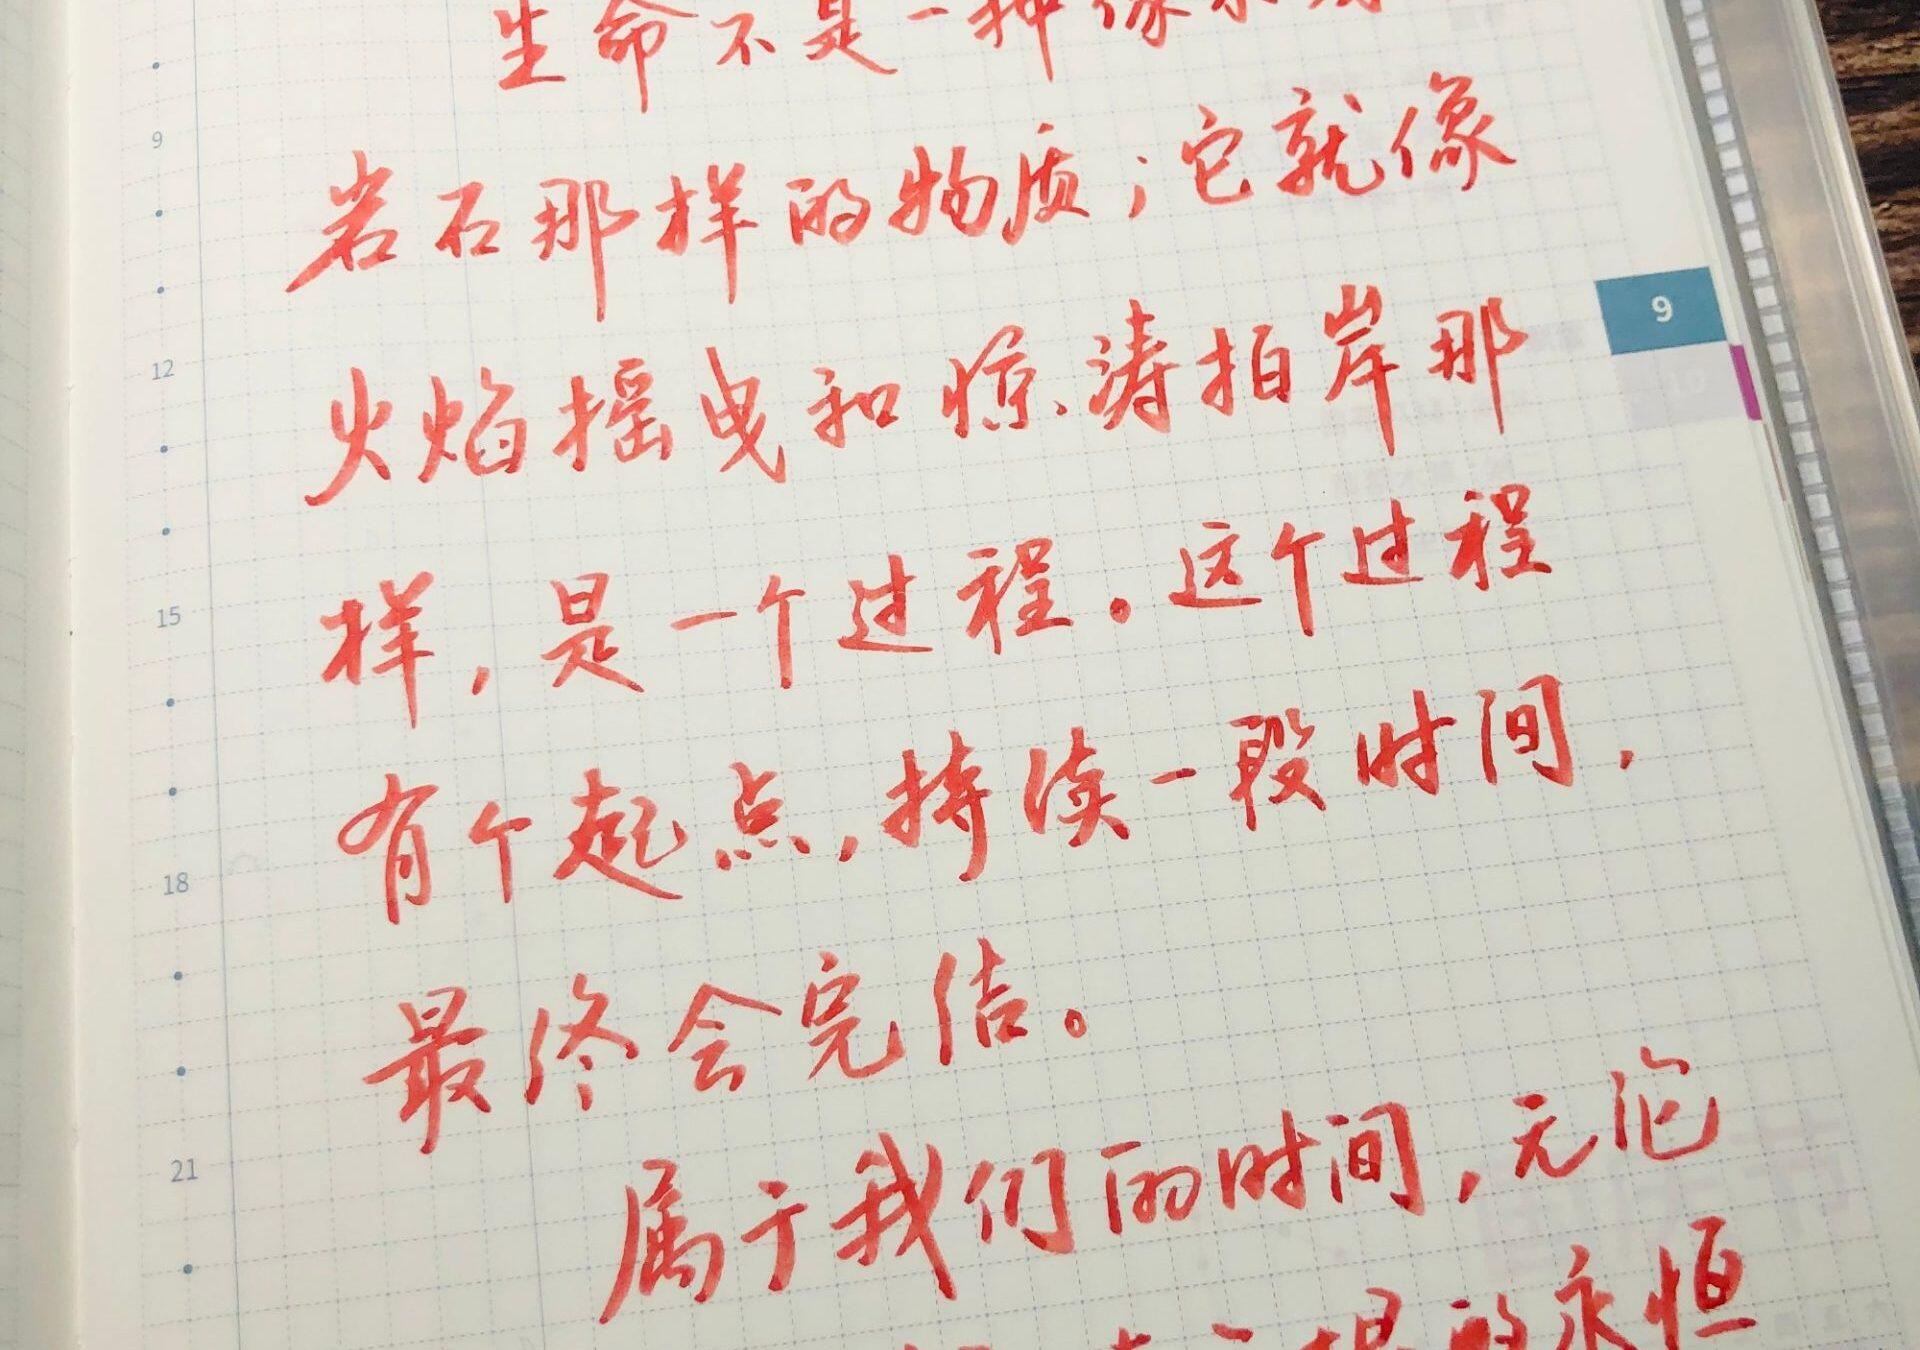 生命不是一种像水或
岩石那样的物质；它就像
火焰摇曳和惊涛拍岸那
样，是一个过程。这个过程
有个起点，持续一段时间，
最终会完结。
属于我们的时间，无论
的永恒
9
12
15
18
21
9